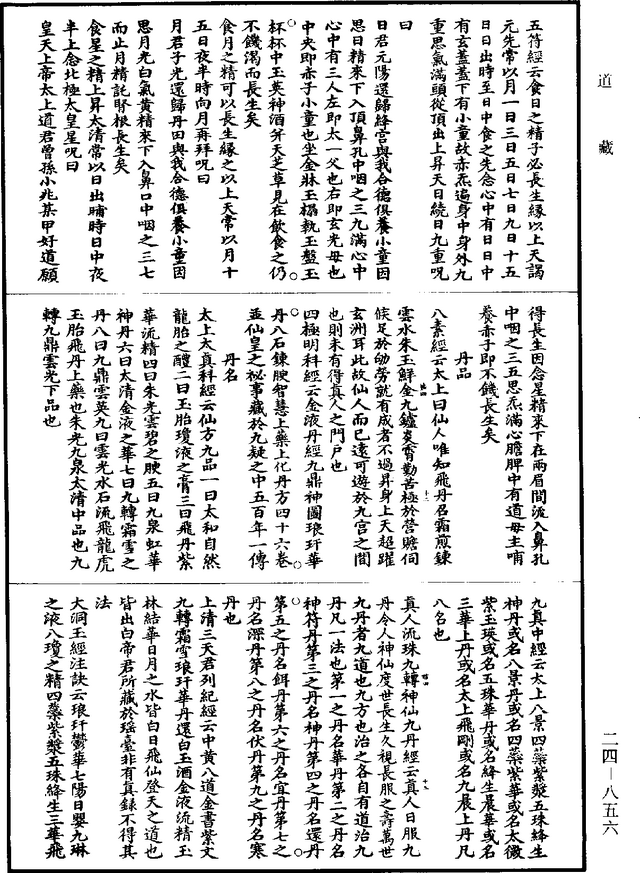 道藏
五符經云食日之精子必長生緣以上天謁
元先常以月一日三日五日七日九日十五
日日出時至日中食之先念心中有日日中
有玄蓋蓋下有小童故赤炁遍身中身外九
重思氣滿頭從頂出上昇天日繞日九重呪
曰
日君元陽還歸絳宮與我合德俱養小童因
思日精來下入頂鼻孔中咽之三九滿心中
心中有三人左即太一父也右即玄光母也
中央即赤子小童也坐金牀玉榻執玉盤玉
杯杯中玉英神酒并天芝草見在飲食之仍
不饑渴而長生矣
食月之精可以長生緣之以上天常以月十
五日夜半時向月再拜呪曰
月君子光還歸丹田與我合德俱養小童因
思月光白氣黃精來下入鼻口中咽之三七
而止月精託腎根長生矣
食星之精上昇太清常以日出晡時日中夜
半上念北極太皇星呪曰
皇天上帝太上道君曾孫小兆某甲好道願
得長生因念星精來下在兩眉間流入鼻孔
中咽之三五思炁滿心膽脾中有道母主哺
養赤子即不饑長生矣
丹品
八素經云太上曰仙人唯知飛丹名霜煎鍊
雲水朱玉鮮金九鑪炎霄勤苦極於營贍伺
候足於劬勞就有成者不過昇身上天超躍
玄洲耳此故仙人而已遠可遊於九宮之間
也則未有得真人之門戶也
四極明科經云金液丹經九鼎神圖琅玕華
丹八石鍊腴智慧上藥上化丹方四十六卷
並仙皇之祕事藏於九疑之中五百年一傳
丹名
太上太真科經云仙方九品一曰太和自然
龍胎之醴二曰玉胎瓊液之膏三曰飛丹紫
華流精四曰朱光雲碧之腴五曰九泉虹華
神丹六曰太清金液之華七曰九轉霜雪之
丹八曰九鼎雲英九曰雲光水石流飛龍虎
玉胎飛丹上藥也朱光九泉太清中品也九
轉九鼎雲光下品也
九真中經云太上八景四蘂紫漿五珠絳生
神丹或名八景丹或名四蘂紫華或名太微
紫玉瑛或名五珠華丹或名絳生晨華或名
三華上丹或名太上飛剛或名九晨上丹凡
八名也
真人流珠九轉神仙九丹經云真人日服九
丹令人神仙度世長生久視長服之壽萬世
九丹者九道也九方也治之各自有道治九
丹凡一法也第一之丹名華丹第二之丹名
神符丹第三之丹名神丹第四之丹名還丹
第五之丹名餌丹第六之丹名宜丹第七之
丹名深丹第八之丹名伏丹第九之丹名寒
丹也
上清三天君列紀經云中黃八道金書紫文
九轉霜雪琅玕華丹還白玉酒金液流精玉
林結華日月之水皆白日飛仙登天之道也
皆出白帝君所藏於瑶臺非有真錄不得其
法
大洞玉經注訣云琅玕鬱華七陽日嬰九琳
之液八瓊之精四蘂紫漿五珠絳生三華飛
二四—八五六